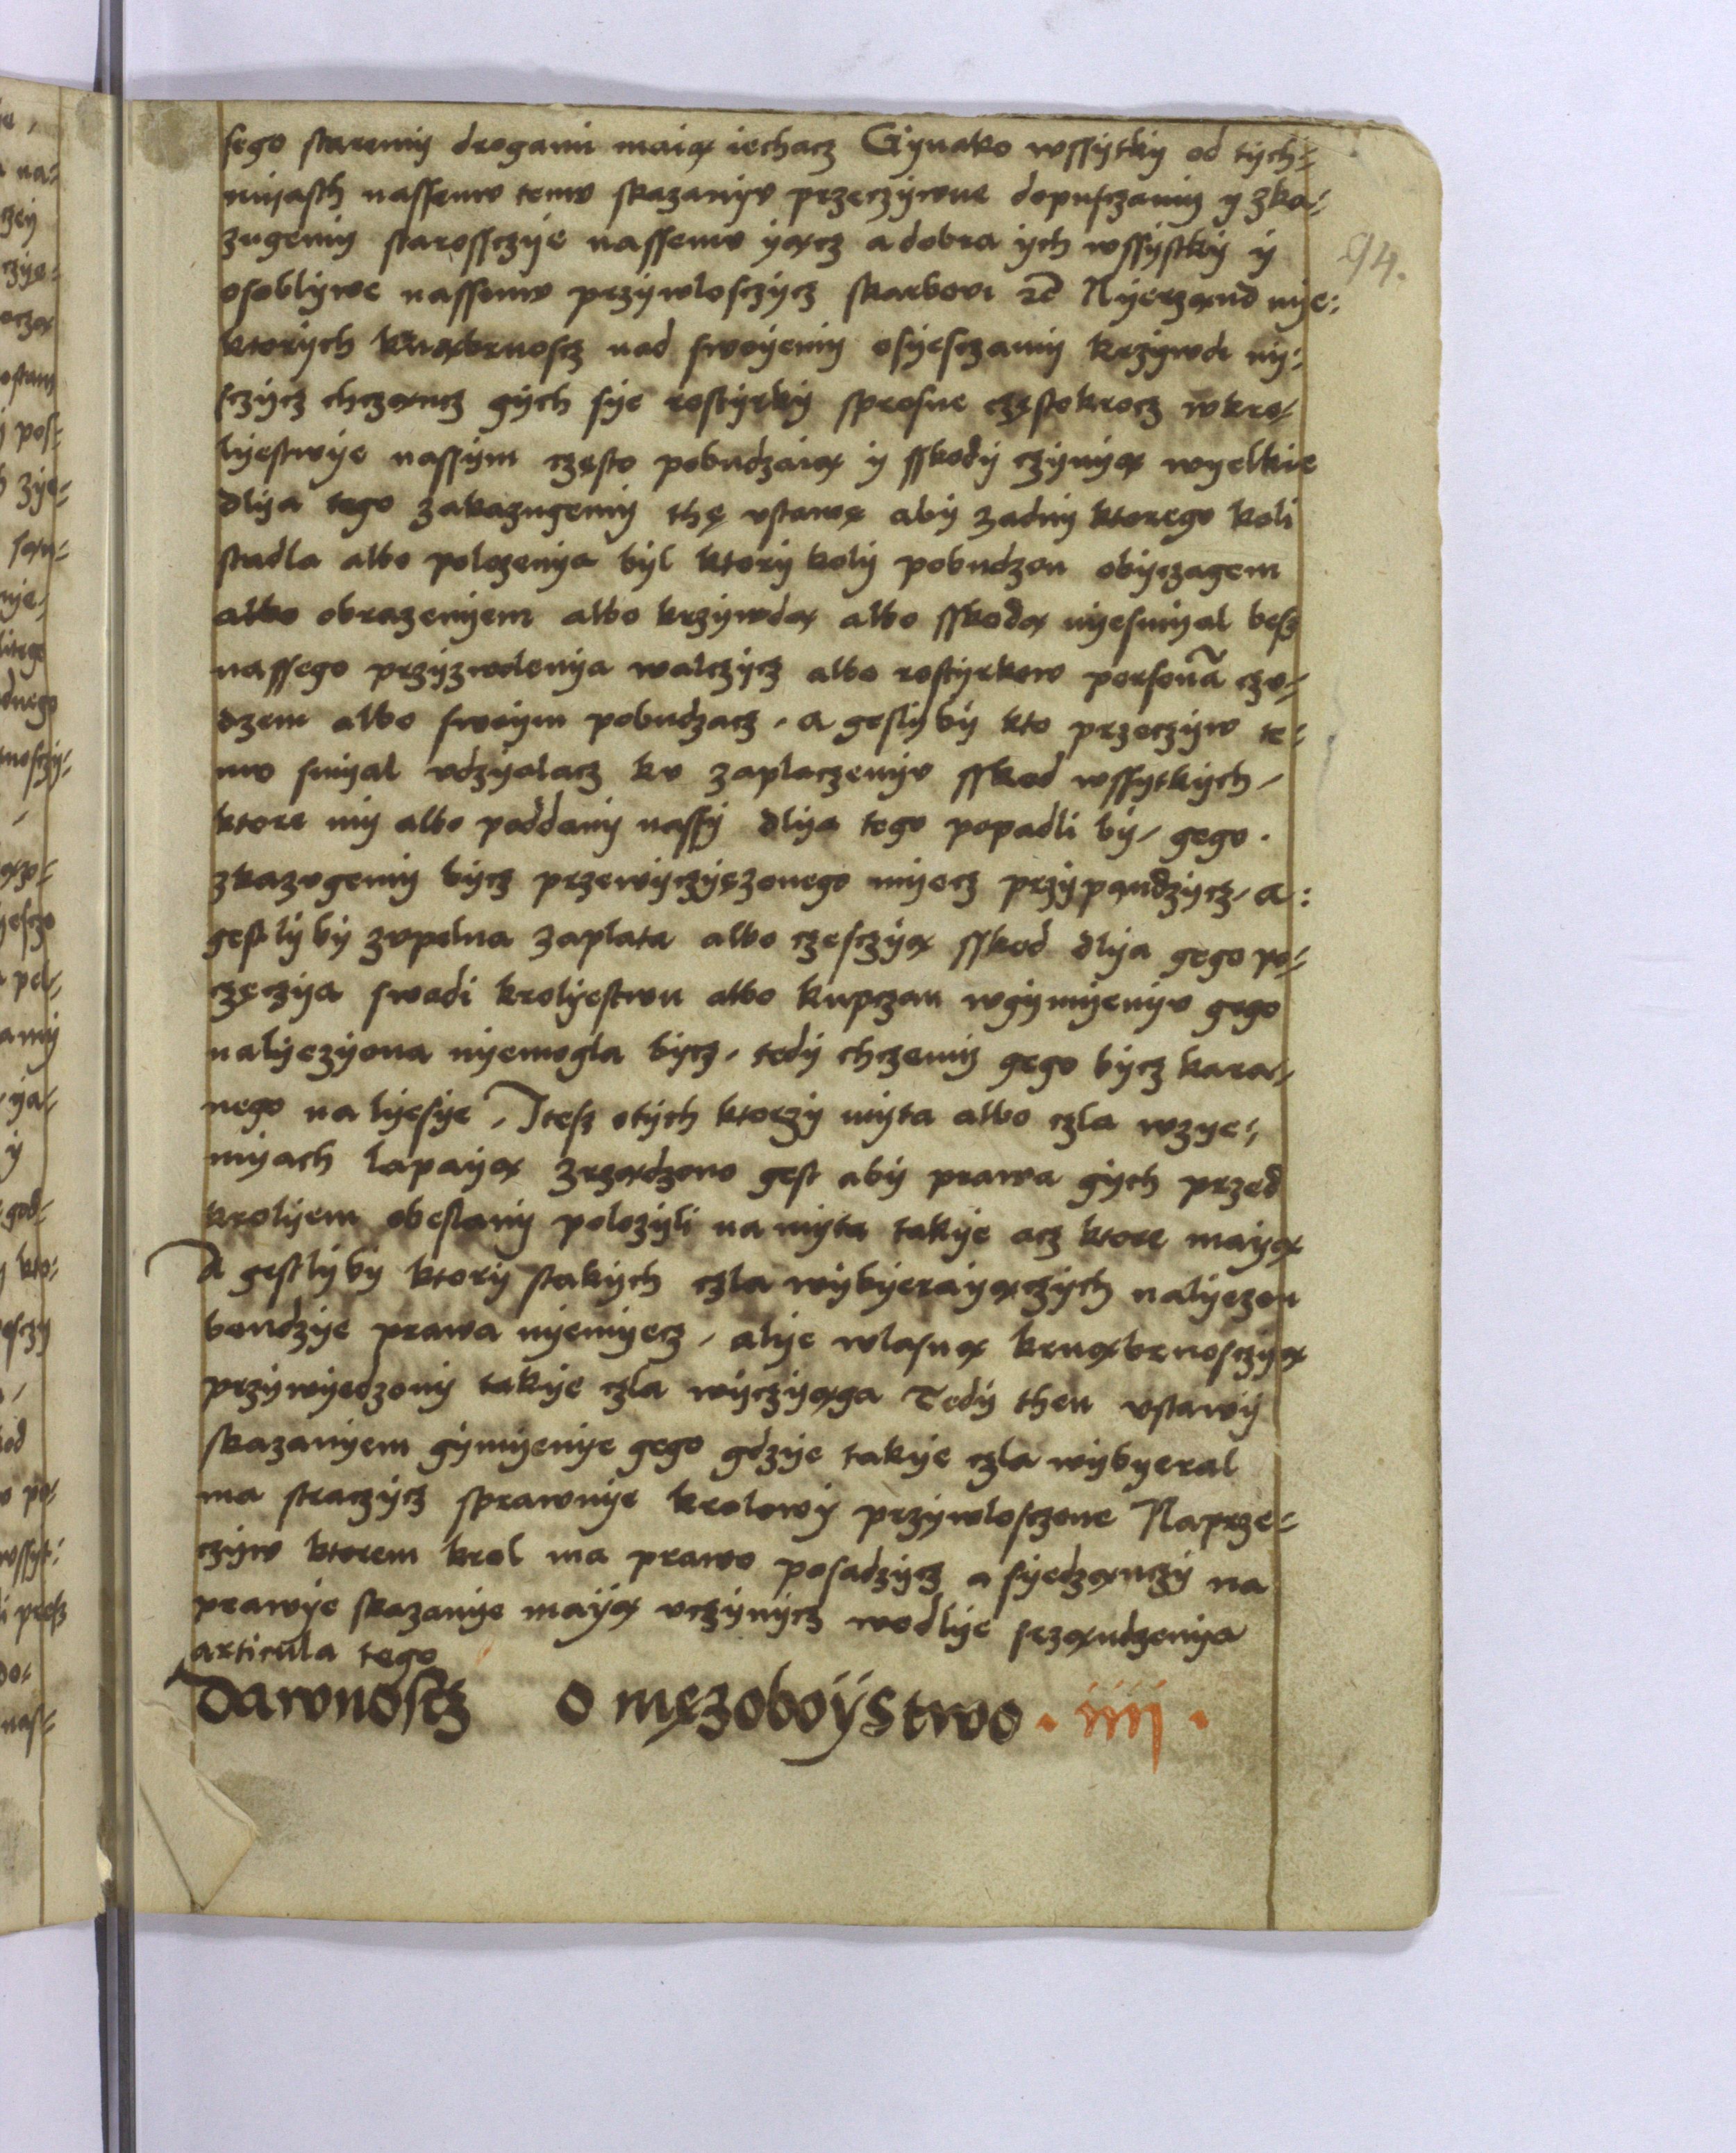 sego staremÿ drogami maią iechacz Gÿnako wssÿtkÿ od tÿch⸗
mÿasth nassemv temv skazanÿv przeczÿwne dopusczamÿ y ska⸗
zugemÿ starossczÿe nassemv ÿącz a dobra ÿch wssÿstkÿ ÿ
osoblÿwe nassemv przÿwlosczÿcz skarbovi etc Nÿerząnd nÿe⸗
ktorÿch krnąbrnoscz nad swoÿemÿ osÿesczamÿ krzÿwdi mÿ⸗
sczÿcz chcząncz gÿch sÿe rostÿrkÿ sprosne częstokrocz w kro⸗
lÿestwÿe nassÿm często pobudzaią ÿ sskodÿ czÿnÿą wÿelkie
dlÿa tego zakazugemÿ thę vstawę abÿ zadnÿ ktorego koli
stadla albo polozenÿa bÿl ktorÿ kolÿ pobudzon obÿczagem
albo obrazenÿem albo krzÿwdą albo sskodą nÿesmÿal besz
nassego przÿzwolenÿa walczÿcz albo rostÿrkow personã czv⸗
dzem albo swoÿm pobudzacz, a geslÿ bÿ kto przeczÿw te⸗
mv smÿal vdzÿalacz kv zaplaczenÿv sskod wssÿtkÿch,
ktore mÿ albo poddanÿ nassÿ dlÿa tego popadli bÿ, gego.
skazvgemÿ bÿcz przewÿczÿęzonego mÿecz przÿpandzÿcz, a:
gestlÿ bÿ zvpelna zaplata albo czesczÿą sskod dlÿa gego po⸗
częczÿa swadi krolÿestwu albo kupczan w gÿmÿenÿv gego
nalÿezÿona nÿemogla bÿcz, tedÿ chczemÿ gego bÿcz kara⸗
nego na lÿesÿe, Itesz o tÿch ktorzÿ mÿta albo czla w zye⸗
mÿach lapaÿą zrządzono gest abÿ prawa gÿch przed
krolÿem obeslanÿ polozÿli na mÿta takÿe acz ktore maÿą
A gestlÿ bÿ ktorÿ s takÿch czla wÿbÿeraÿączÿch nalÿezon
bendzÿe prawa nÿemÿecz, alÿe wlasną krnąbrnosczÿą
przÿwÿedzonÿ takÿe czla wÿczÿąga Tedÿ then vstawÿ
skazanÿem gÿmÿenÿe gego gdzÿe takÿe czla wÿbÿeral
ma straczÿcz sprawnÿe krolowÿ przÿwlosczone Naprze⸗
czÿw ktorem krol ma prawo posadzÿcz a sÿedzączÿ na
prawÿe skazanÿe maÿą vczÿnÿcz wedlÿe srządzenÿa
articula tego
Dawnoscz o mężoboÿstwo . iiij .
94.